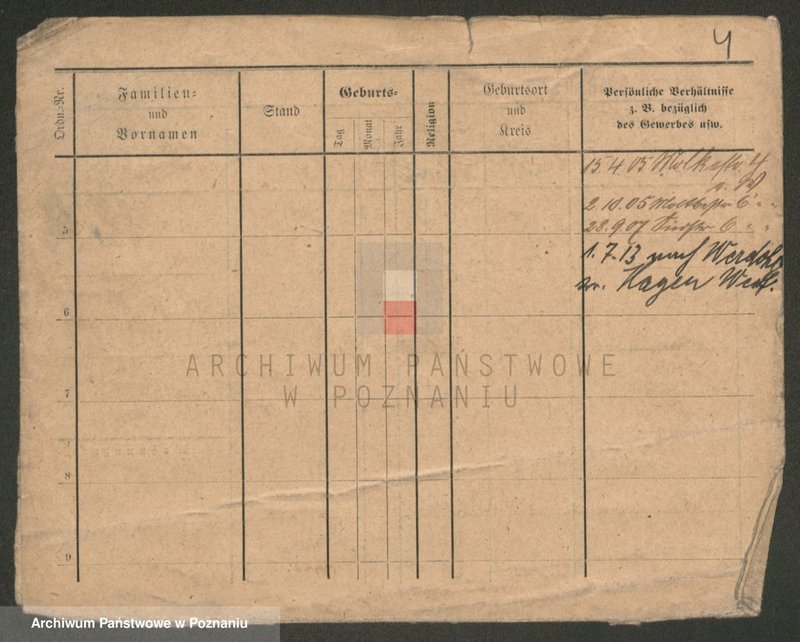 4
Ordn.=Nr.
Familien=
und
Vornamen
Stand
Geburts=
Tag
Monat
Jahr
Religion
Geburtsort
und
Kreis
Persönliche Verhältnisse
z. B. bezüglich
des Gewerbes usw.
15.4 05
2.10.05 6 " "
28.9.07 6 " "
1.7.13 nach Werdohl
Kr. Hagen Westf.
5
6
7
8
9
ARCHIWUM PAŃSTWOWE
W POZNANIU
Archiwum Państwowe w Poznaniu